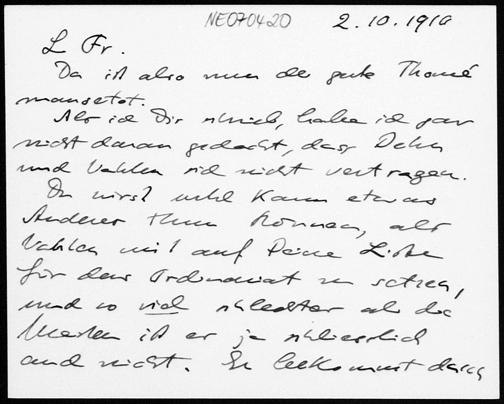 NE070420 2.10.1910
L Fr.
Da ist also nun der gute Thomé
mausetot.
Als ich Dir schrieb, habe ich gar
nicht daran gedacht, dass Dehn
und Vahlen sich nicht vertragen.
Du wirst wohl kaum etwas
Anderes thun können, als
Vahlen mit auf Deine Liste
für das Ordinariat zu setzen,
und so viel schlechter als die
Meisten ist er ja schliesslich
auch nicht. Er bekommt durch